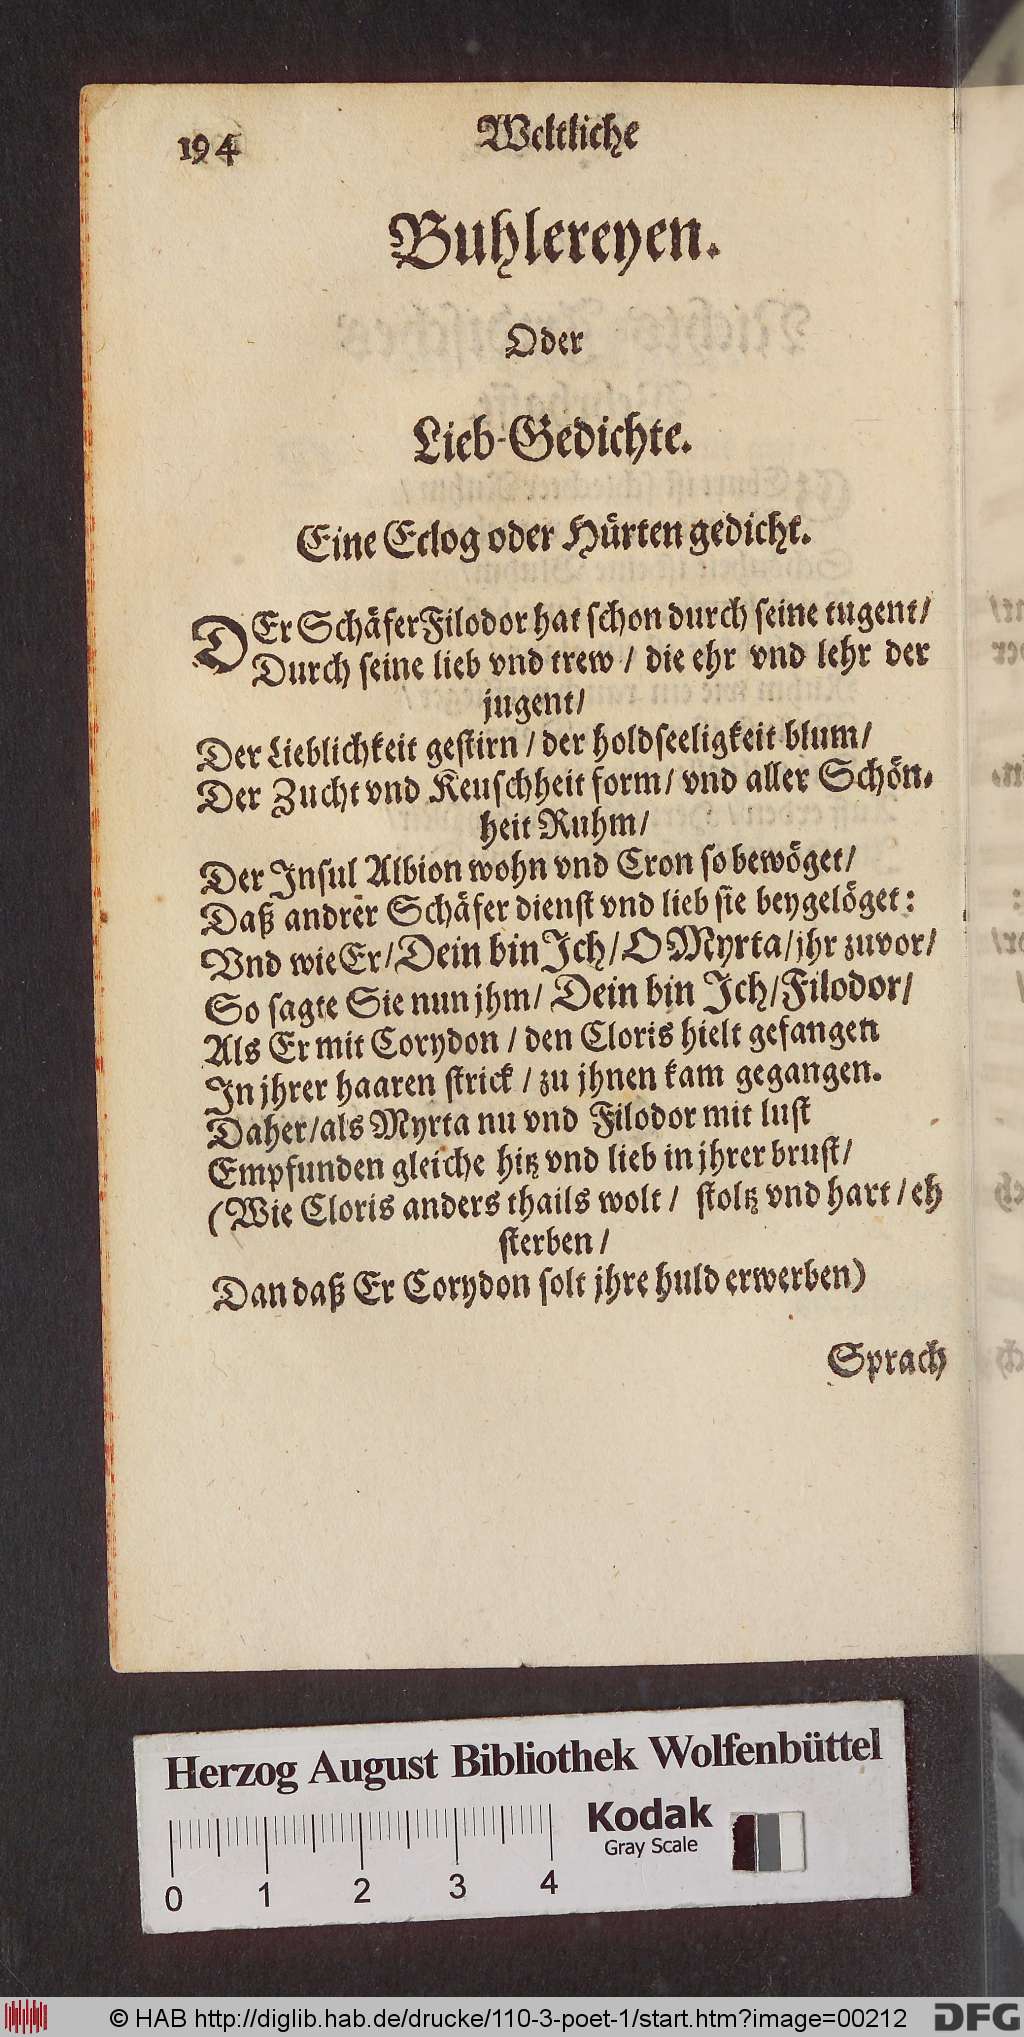 194
Weltliche
Buhlereyen.
Oder
Lieb-Gedichte.
Eine Eclog oder Hürten gedicht.
DEr Schäfer Filodor hat schon durch seine tugent/
Durch seine lieb vnd trew / die ehr vnd lehr der
jugent/
Der Lieblichkeit gestirn / der holdseeligkeit blum/
Der Zucht vnd Keuschheit form/ vnd aller Schön-
heit Ruhm/
Der Insul Albion wohn vnd Cron so bewöget/
Daß andrer Schäfer dienst vnd lieb sie beygelöget:
Vnd wie Er/ Dein bin Ich/ O Myrta/ jhr zuvor/
So sagte Sie nun jhm/ Dein bin Ich/ Filodor/
Als Er mit Corydon / den Cloris hielt gefangen
In jhrer haaren strick / zu jhnen kam gegangen.
Daher/ als Myrta nu vnd Filodor mit lust
Empfunden gleiche hitz vnd lieb in jhrer brust/
(Wie Cloris anders thails wolt / stoltz vnd hart / eh
sterben /
Dan daß Er Corydon solt jhre huld erwerben)
Sprach
Herzog August Bibliothek Wolfenbüttel
Kodak
Gray Scale
0 1 2 3 4
© HAB http://diglib.hab.de/drucke/110-3-poet-1/start.htm?image=00212
DFG